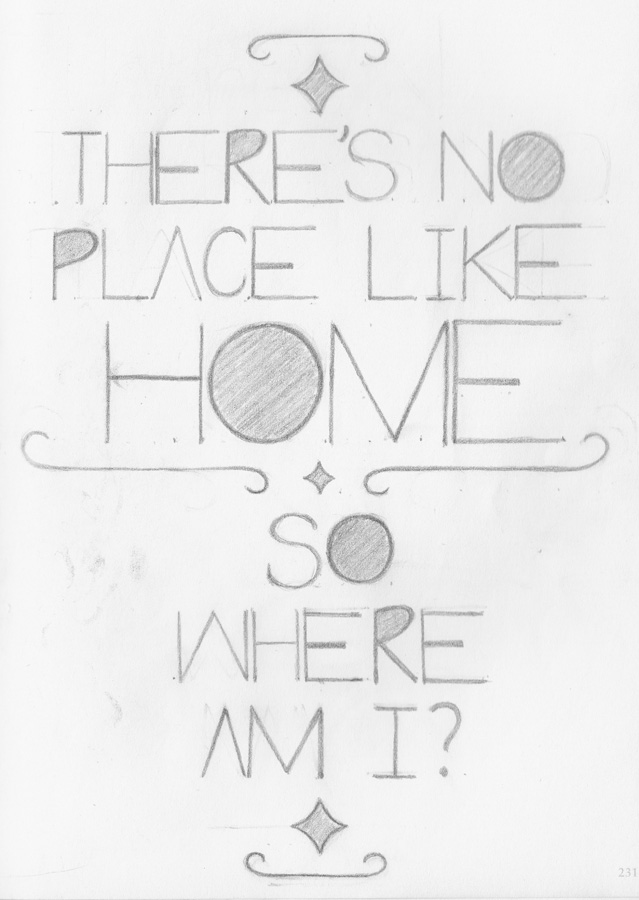 THERE'S NO
PLACE LIKE
HOME
SO
WHERE
AM I?
231